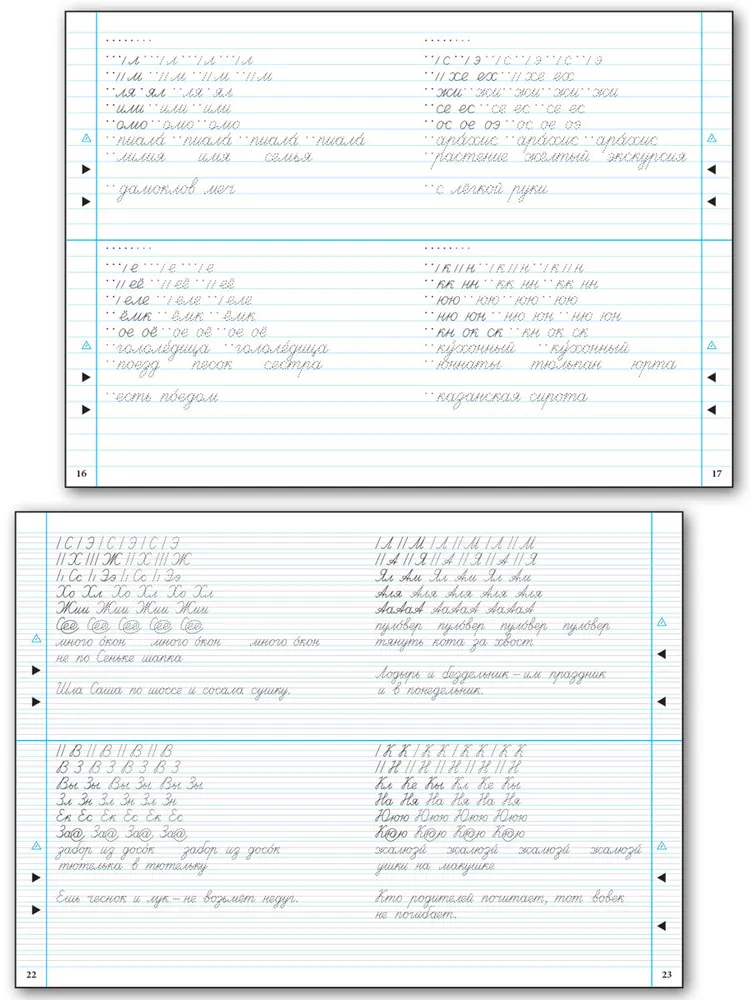 л л л л
м м м м
ля ял ля ял
или или или
омо омо омо
пиала́ пиала́ пиала́ пиала́
лилия имя семья
дамоклов меч
е е е
её её её
еле еле еле
ёмк ёмк ёмк
ое оё ое оё ое оё
гололе́дица гололе́дица
поезд песок сестра
есть по́едом
16
с э с э с э
хе ех хе ех
жи жи жи жи жи
се ес се ес се ес
ос ое оэ ос ое оэ
ара́хис ара́хис ара́хис
растение жёлтый экскурсия
с лёгкой руки
к н к н к н
кк нн кк нн кк нн
юю юю юю юю
ню юн ню юн ню юн
кн ок ск кн ок ск
ку́хонный ку́хонный
юннаты тюльпан юрта
казанская сирота
17
С Э С Э С Э
Х Ж Х Ж
Сс Ээ Сс Ээ
Хо Хл Хо Хл Хо Хл
Жии Жии Жии Жии
Сее Сее Сее Сее Сее
много о́кон много о́кон много о́кон
не по Сеньке шапка
Шла Саша по шоссе и сосала сушку.
В В В В
В З В З В З В З
Вы Зы Вы Зы Вы Зы
Зл Зн Зл Зн Зл Зн
Ек Ес Ек Ес Ек Ес
забор из досо́к забор из досо́к
тютелька в тютельку
Ешь чеснок и лук – не возьмёт недуг.
22
Л М Л М Л М Л М
А Я А Я А Я А Я
Ял Ам Ял Ам Ял Ам
Аля Аля Аля Аля Аля
АаАаА АаАаА АаАаА
пуло́вер пуло́вер пуло́вер пуло́вер
тянуть кота за хвост
Лодырь и бездельник – им праздник
и в понедельник.
К К К К К К К К
Н Н Н Н Н
Кл Ке Кы Кл Ке Кы
На Ня На Ня На Ня
Ююю Ююю Ююю Ююю
жалюзи́ жалюзи́ жалюзи́ жалюзи́
ушки на макушке
Кто родителей почитает, тот вовек
не погибает.
23